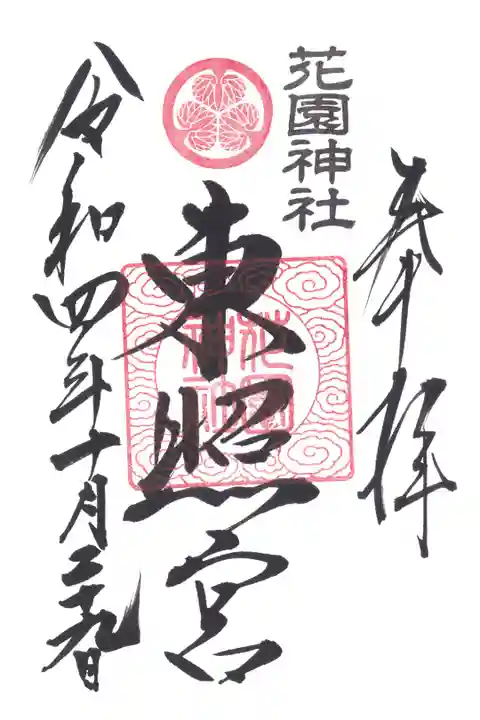 奉拝
花園神社
東照宮
花園
神社
令和四年十月二十九日